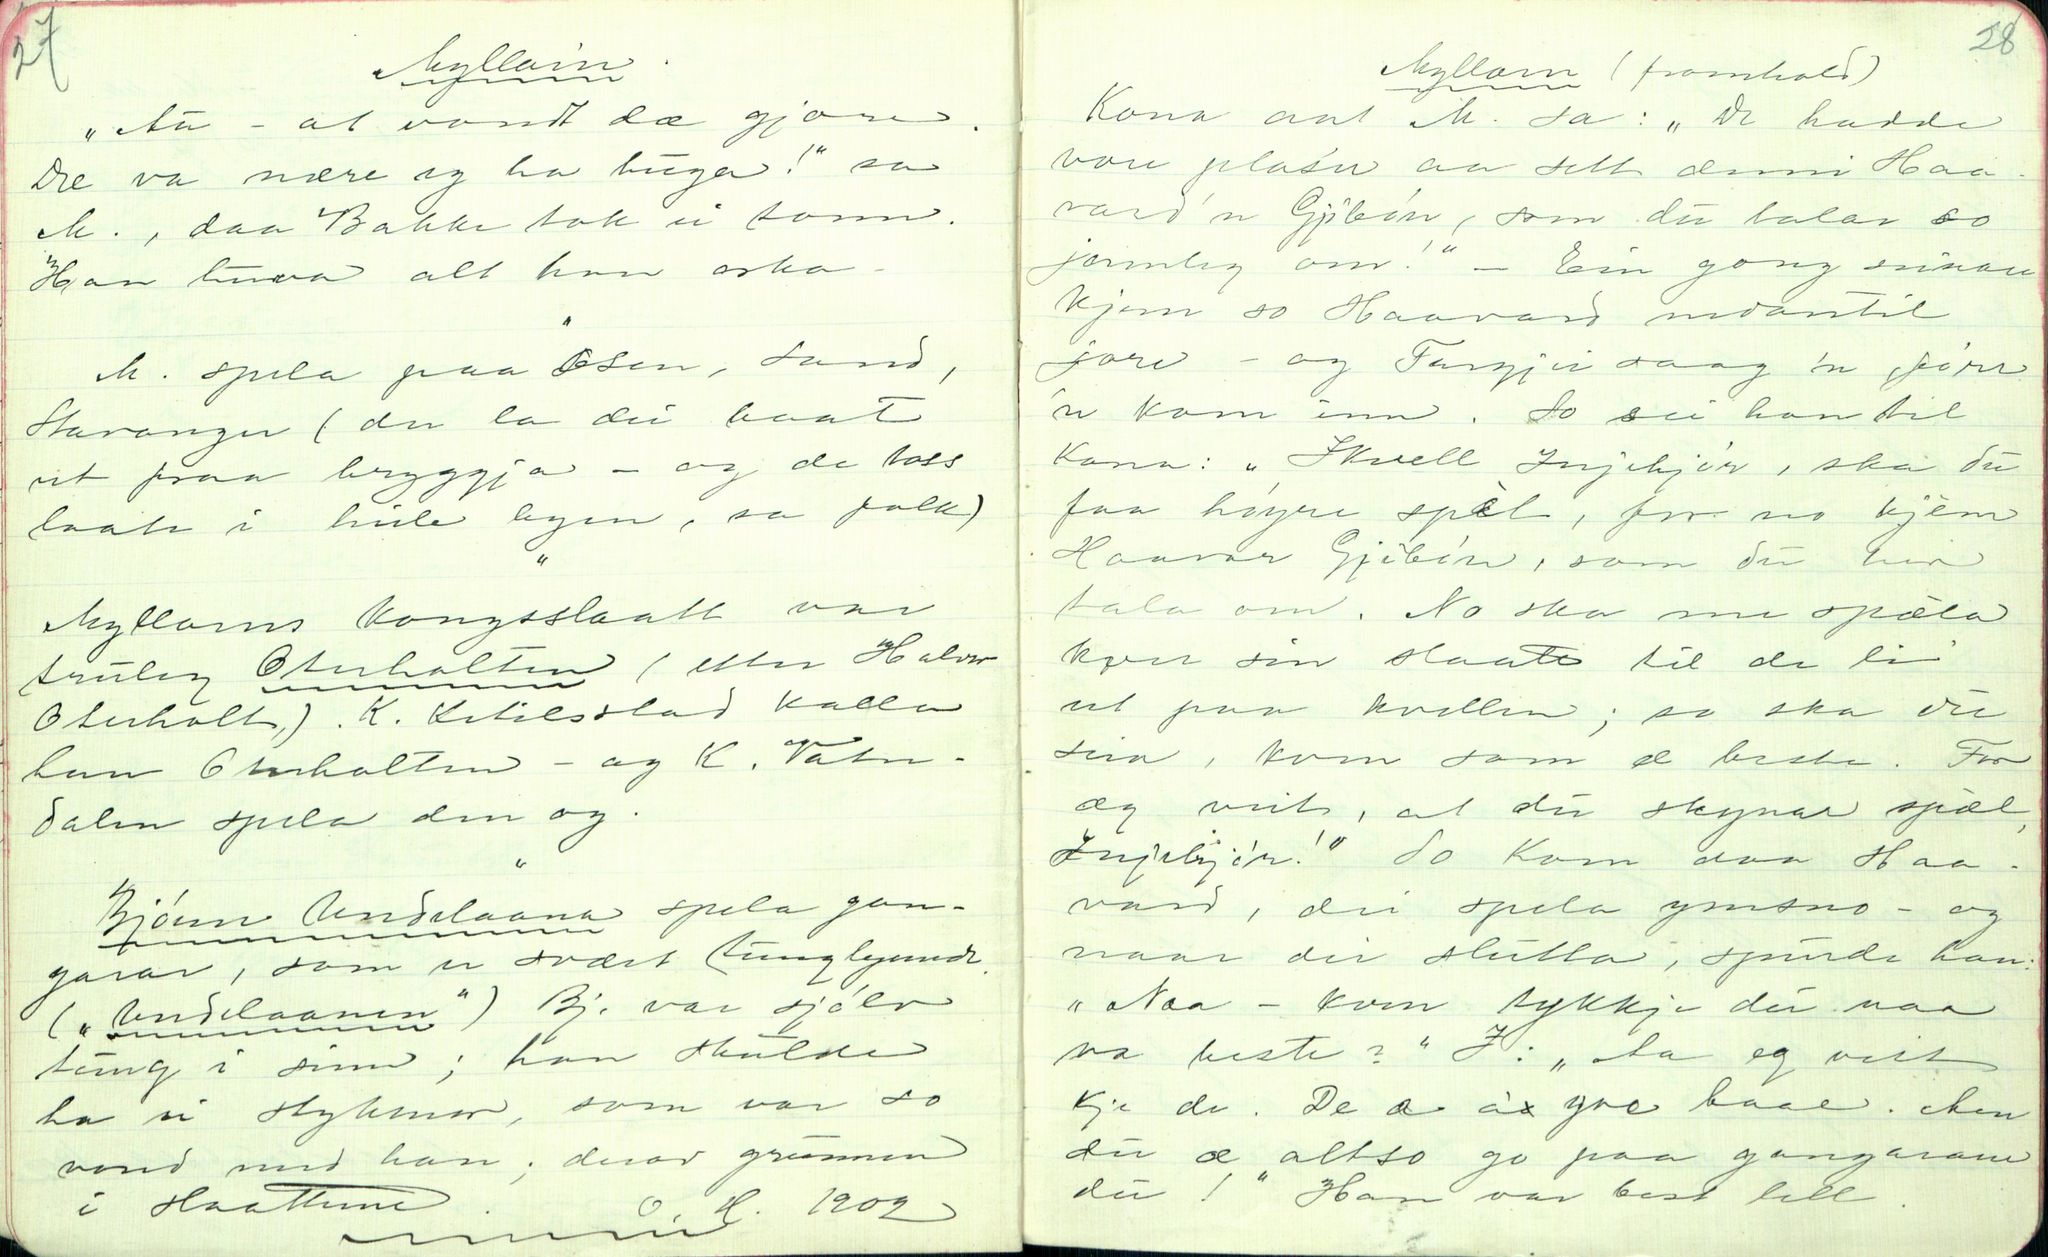 27
Myllarn.
„Au – at vondt dæ gjore.
Dæ va nære eg ha buga!" sa
M., daa Bakke tok ei tonn.
Han tura alt han orka –
"
M. spela paa Osen, Sand,
Stavanger (der la dei baat
ut fraa bryggja – og de loss
laate i heile byen, sa folk)
"
Myllarns Kongsslaatt var
truleg Oterholten (etter Halvor
Oterholt). K. Ketilsstad kalla
han Oterholten – og K. Vatn-
dalen spela den og.
"
Bjórn Undelaana spela gan-
garar, som er svært tungbygende.
(„Undelaanen") Bj. var sjólv
tung i sinn; han skulde
ha ei stykmor, som var so
vond med han; derav grunnen
i slaattene. O. H. 1902

28
Myllarn (framhald)
Kona aat M. sa: „De hadde
vore plásu aa sett denni Haa-
vard'n Gjibón, som du talar so
jamleg om!" – Ein gong seinare
kjem so Haavard nedantil
jore – og Targjei saag 'n fórr
'n kom inn. So sei han til
Kona: „I kvell Injebjór, ska du
faa høyre spèl, for no kjèm
Haavar Gjibón, som du heve
tala om. No ska me spæla
kver sin slaatt til de li
ut paa kvellen; so ska du
seia, kom som æ beste. For
æg veit, at du skynar spæl,
Injebjór!" So kom daa Haa-
vard, dei spela ymsno – og
naar dei slutta, spurde han:
„Naa – kven tykkje du naa
va beste?" I: „Aa eg veit
kje de. De æ goe baae. Men
du æ altso go paa gangarane
du!" Han var best lell.